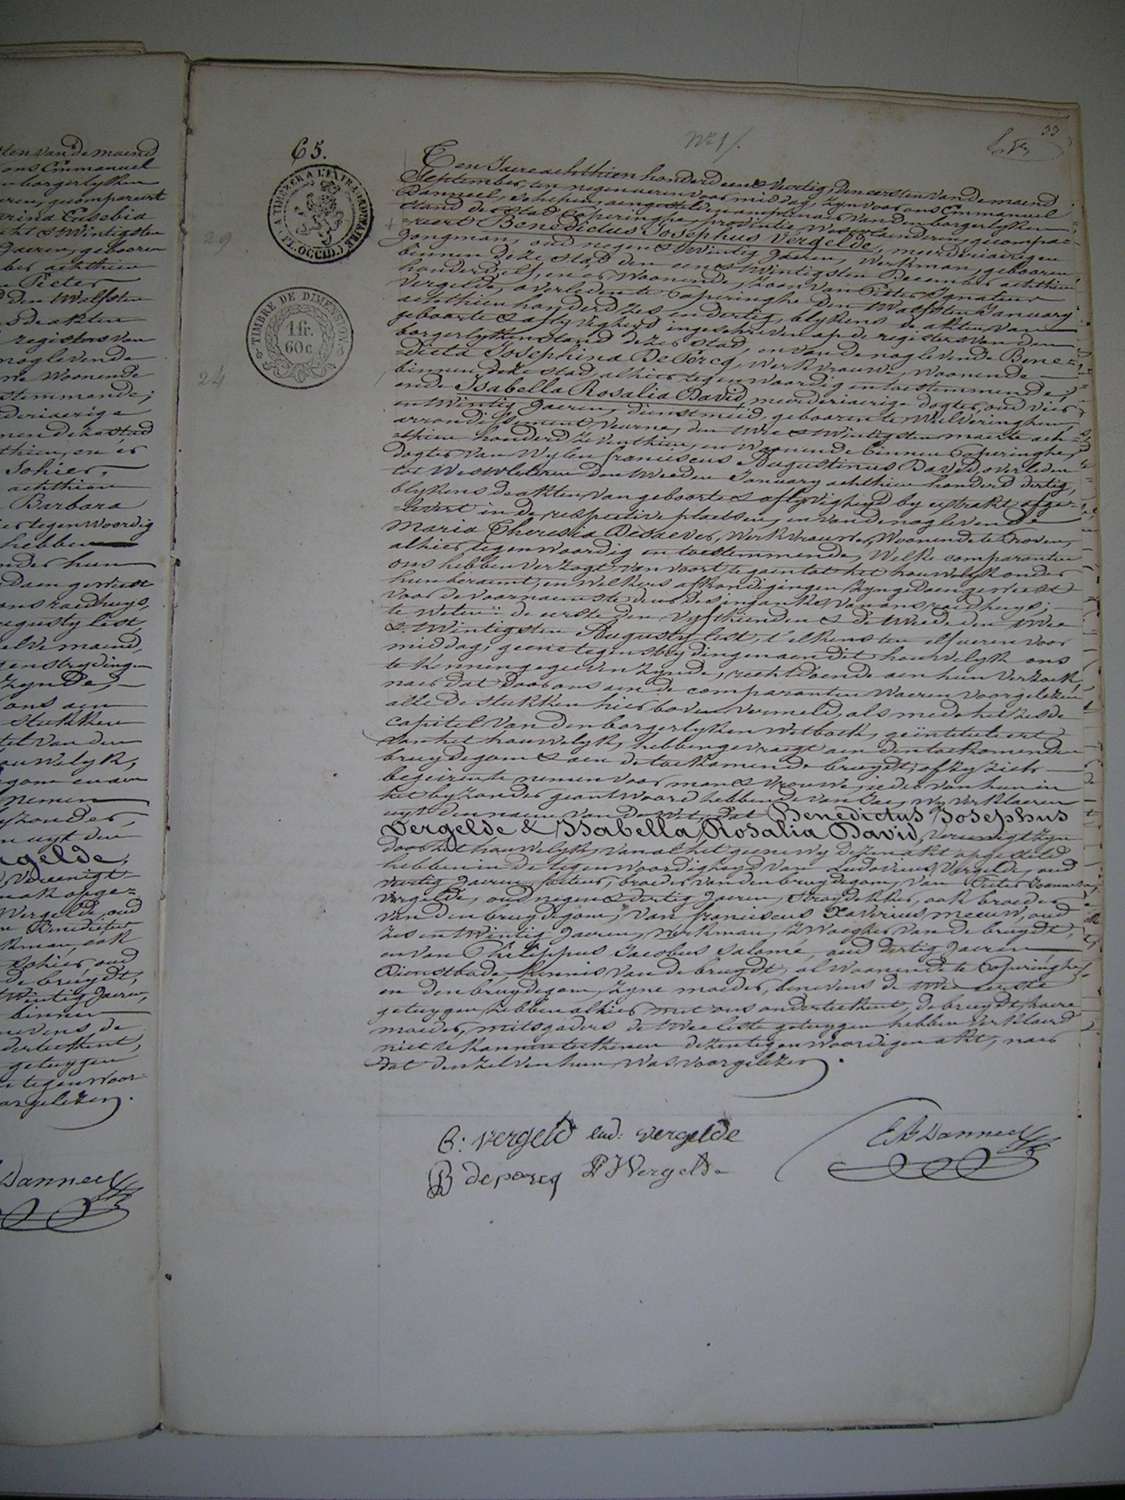 65.
N° 1/.
33
TIMBRE A L'EXTRAORDINAIRE
FL. OCCID.
TIMBRE DE DIMENSION
1 fr.
60 c.
29
24
Ten Jaere achthien honderd een & veertig, den eersten van de maend
September, ten negen uren voor middag, zyn voor ons Emmanuel
Danneel, Schepen, aengestelden ambtenaer van den borgerlyken
stand der stad Poperinghe, provintie Westvlaenderen, gecompa-
reert Benedictus Josephus Vergelde, meerderjaerigen
jongman, oud negen & twintig jaeren, werkman, geboren
binnen deze stad den een & twintigsten December achthien
honderd elf, en er woonende, zoon van Pieter Donateur
Vergelde, overleden te Poperinghe den twaelfsten January
achthien honderd zes en dertig, blykens de akten van
geboorte & aflyvigheyd ingeschreven op de registers van den
borgerlyken stand dezer stad, en van de naglevende Bene-
dicta Josephina De Porcq, werkvrouw, woonende
binnen deze stad, alhier tegenwoordig en toestemmende;
ende Isabella Rosalia David, meerderjaerige dogter, oud vier
en twintig jaeren, dienstmeid, geboren te Wulveringhem,
arrondissement Veurne, den twee & twintigsten maerte ach-
thien honderd zeventhien, en woonende binnen Poperinghe,
dogter van wylen Franciscus Augustinus David, overleden
tot Westvleteren den tweeden January achthien honderd dertig,
blykens de akten van geboorte & aflyvigheyd by extrakt afge-
levert in de respective plaetsen, en van de naglevende
Maria Theresia Desaever, werkvrouwe, woonende te Proven,
alhier tegenwoordig en toestemmende, Welke comparanten
ons hebben verzogt van voort te gaen tot het houwelyk onder
hun beraemt, en welkers afkondigingen zyn gedaen geweest
voor de voornaemste deur des ingank's van ons raedhuys,
te weten: de eerste den vyfthienden & de tweede den twee
& twintigsten Augusty lest, t'elkens ten elf uren voor
middag; geene tegenstrydingen aen dit houwelyk ons
te kennen gegeeven zynde, rechtdoende aen hun verzoek,
naer dat door ons aen de comparanten waeren voorgelezen
alle de stukken hier boven vermeld, als mede het zesde
capitel van den borgerlyken wetboek, geïntituleert
van het houwelyk, hebben gevraegt aen den toekomenden
bruydegom & aen de toekomende bruydt, of zy zich
begeirente nemen voor man & vrouwe; ieder van hun in
het byzonder geantwoord hebbende van Jae, Wy verklaeren
uyt den naeme van de Wet, dat Benedictus Josephus
Vergelde & Isabella Rosalia David, vereenigt zyn
door het houwelyk, van al het geene wy dezen akt opgesteld
hebben in de tegenwoordigheyd van Ludovicus Vergelde, oud
veertig jaeren, broeder van den bruydegom, van Pieter Joannes
Vergelde, oud negen & dertig jaeren, strooydekker, ook broeder
van den bruydegom; van Franciscus Xaverius Meeuw, oud
zes en twintig jaeren, werkman, zwaeger van de bruydt,
en van Philippus Jacobus Salomé, oud dertig jaeren,
dienstbode, kennis van de bruydt, al woonende te Poperinghe,
en den bruydegom, zyne moeder, benevens de twee eerste
getuygen hebben alhier met ons onderteekent, de bruydt, haere
moeder, mitsgaders de twee leste getuygen hebben verklaerd
niet te kunnen teekenen dezen tegenwoordigen akt, naer
dat denzelven hun was voorgelezen.
B: vergeld lud: vergelde
B deporcq PJ Vergelde
E Danneel